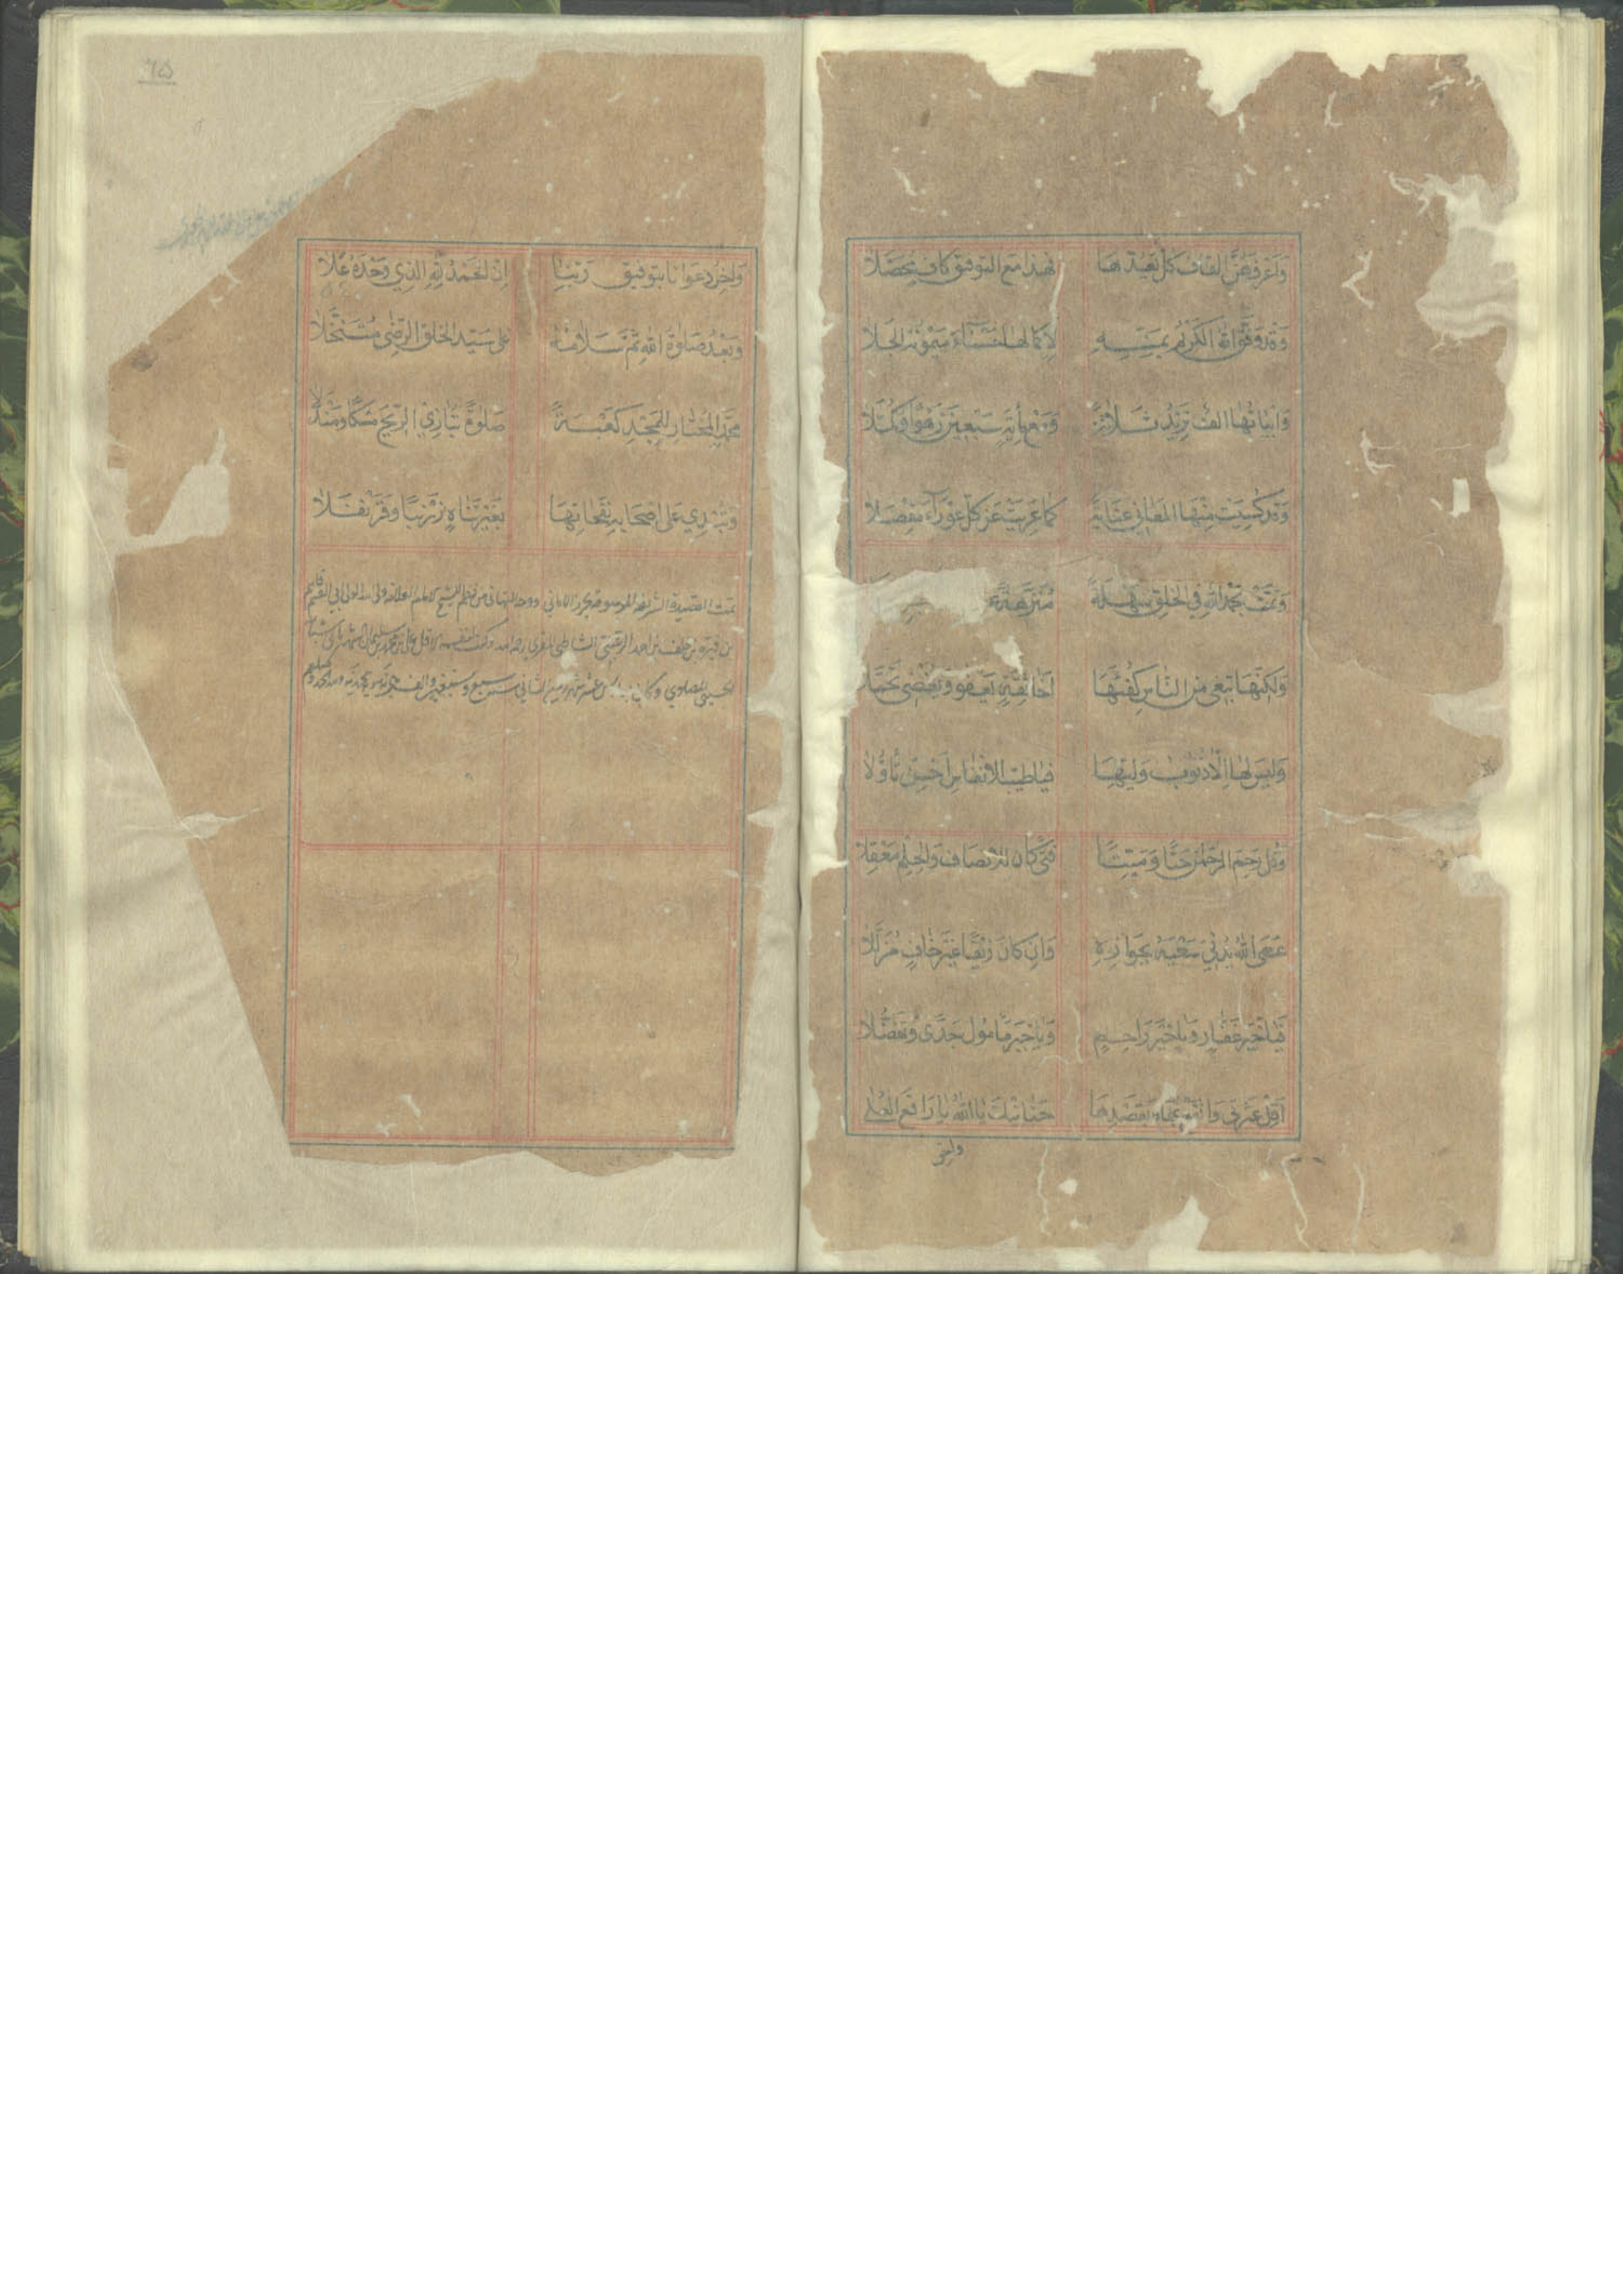 وَاَعْرَفُهُنَّ القاف كُلٌّ يَعُدُّهَا فهذا مَعَ التوفيق كافٍ مُحَصَّلَا
وَقَدْ وَفَّقَ اللهُ الكَرِيْمُ بِمَنِّهِ لِاِكْمَالِهَا حَسْنَاءَ مَيْمُونَةَ الجَلَا
وَاَبْيَاتُهَا اَلْفٌ تَزِيْدُ ثَلَاثَةً وَمَعْ مِأَيَةٍ سَبْعِيْنَ زَهْوًا وَكُمَّلَا
وَقَدْ كُسِيَتْ مِنْهَا المَعَانِي عِنَايَةً كَمَا عَرِيَتْ عَنْ كُلِّ عَوْرَاءَ مِفْصَلَا
وَتَمَّتْ بِحَمْدِ اللهِ فِي الخَلْقِ سَهْلَةً مُنَزَّهَةً
وَلَكِنَّهَا تَبْغِي مِنَ النَّاسِ كُفْئَهَا اَخَا ثِقَةٍ يَعْفُو وَيُغْضِي تَجَمُّلَا
وَلَيْسَ لَهَا اِلَّا ذُنُوْبُ وَلِيِّهَا فَيَا طَيِّبَ الاَنْفَاسِ اَحْسِنْ تَأَوُّلَا
وَقُلْ رَحِمَ الرَّحْمٰنُ حَيًّا وَمَيِّتًا فَتًى كَانَ لِلاِنْصَافِ وَالحِلْمِ مَعْقِلَا
عَسَى اللهُ يُدْنِي سَعْيَهُ بِجَوَازِهِ وَاِنْ كَانَ زَيْفًا غَيْرَ خَافٍ مُزَلَّلَا
فَيَا خَيْرَ غَفَّارٍ وَيَا خَيْرَ رَاحِمٍ وَيَا خَيْرَ مَأْمُولٍ جَدًى وَتَفَضُّلَا
اَقِلْ عَثْرَتِي وَانْفَعْ بِهَا وَبِقَصْدِهَا حَنَانَيْكَ يَا اللهُ يَا رَافِعَ العُلَى
واخر
٦٥
وَاٰخِرُ دَعْوَانَا بِتَوفِيقِ رَبِّنَا اَنِ الحَمْدُ لِلّٰهِ الَّذِي وَحْدَهُ عَلَا
وَبَعْدُ صَلٰوةُ اللهِ ثُمَّ سَلَامُهُ عَلَى سَيِّدِ الخَلْقِ الرِّضَى مُتَنَخِّلَا
مُحَمَّدٍ المُخْتَارِ لِلْمَجْدِ كَعْبَةً صَلٰوةً تُبَارِي الرِّيحَ مِسْكًا وَمَنْدَلَا
وَتُبْدِي عَلَى اَصْحَابِهِ نَفَحَاتِهَا بِغَيْرِ تَنَاهٍ زَرْنَبًا وَقَرَنْفُلَا
تمت القصيدة الشريفة الموسومة بحرز الاماني ووجه التهاني من نظم الشيخ الامام العلامة ولي الله ابي القاسم
بن فيرة بن خلف بن احمد الرعيني الشاطبي المقري رحمه الله وكتبه الاقل علي بن محمد بن سليمان
الحسيني وكان عشر شهر ربيع الثاني سنة سبع وسبعين والف